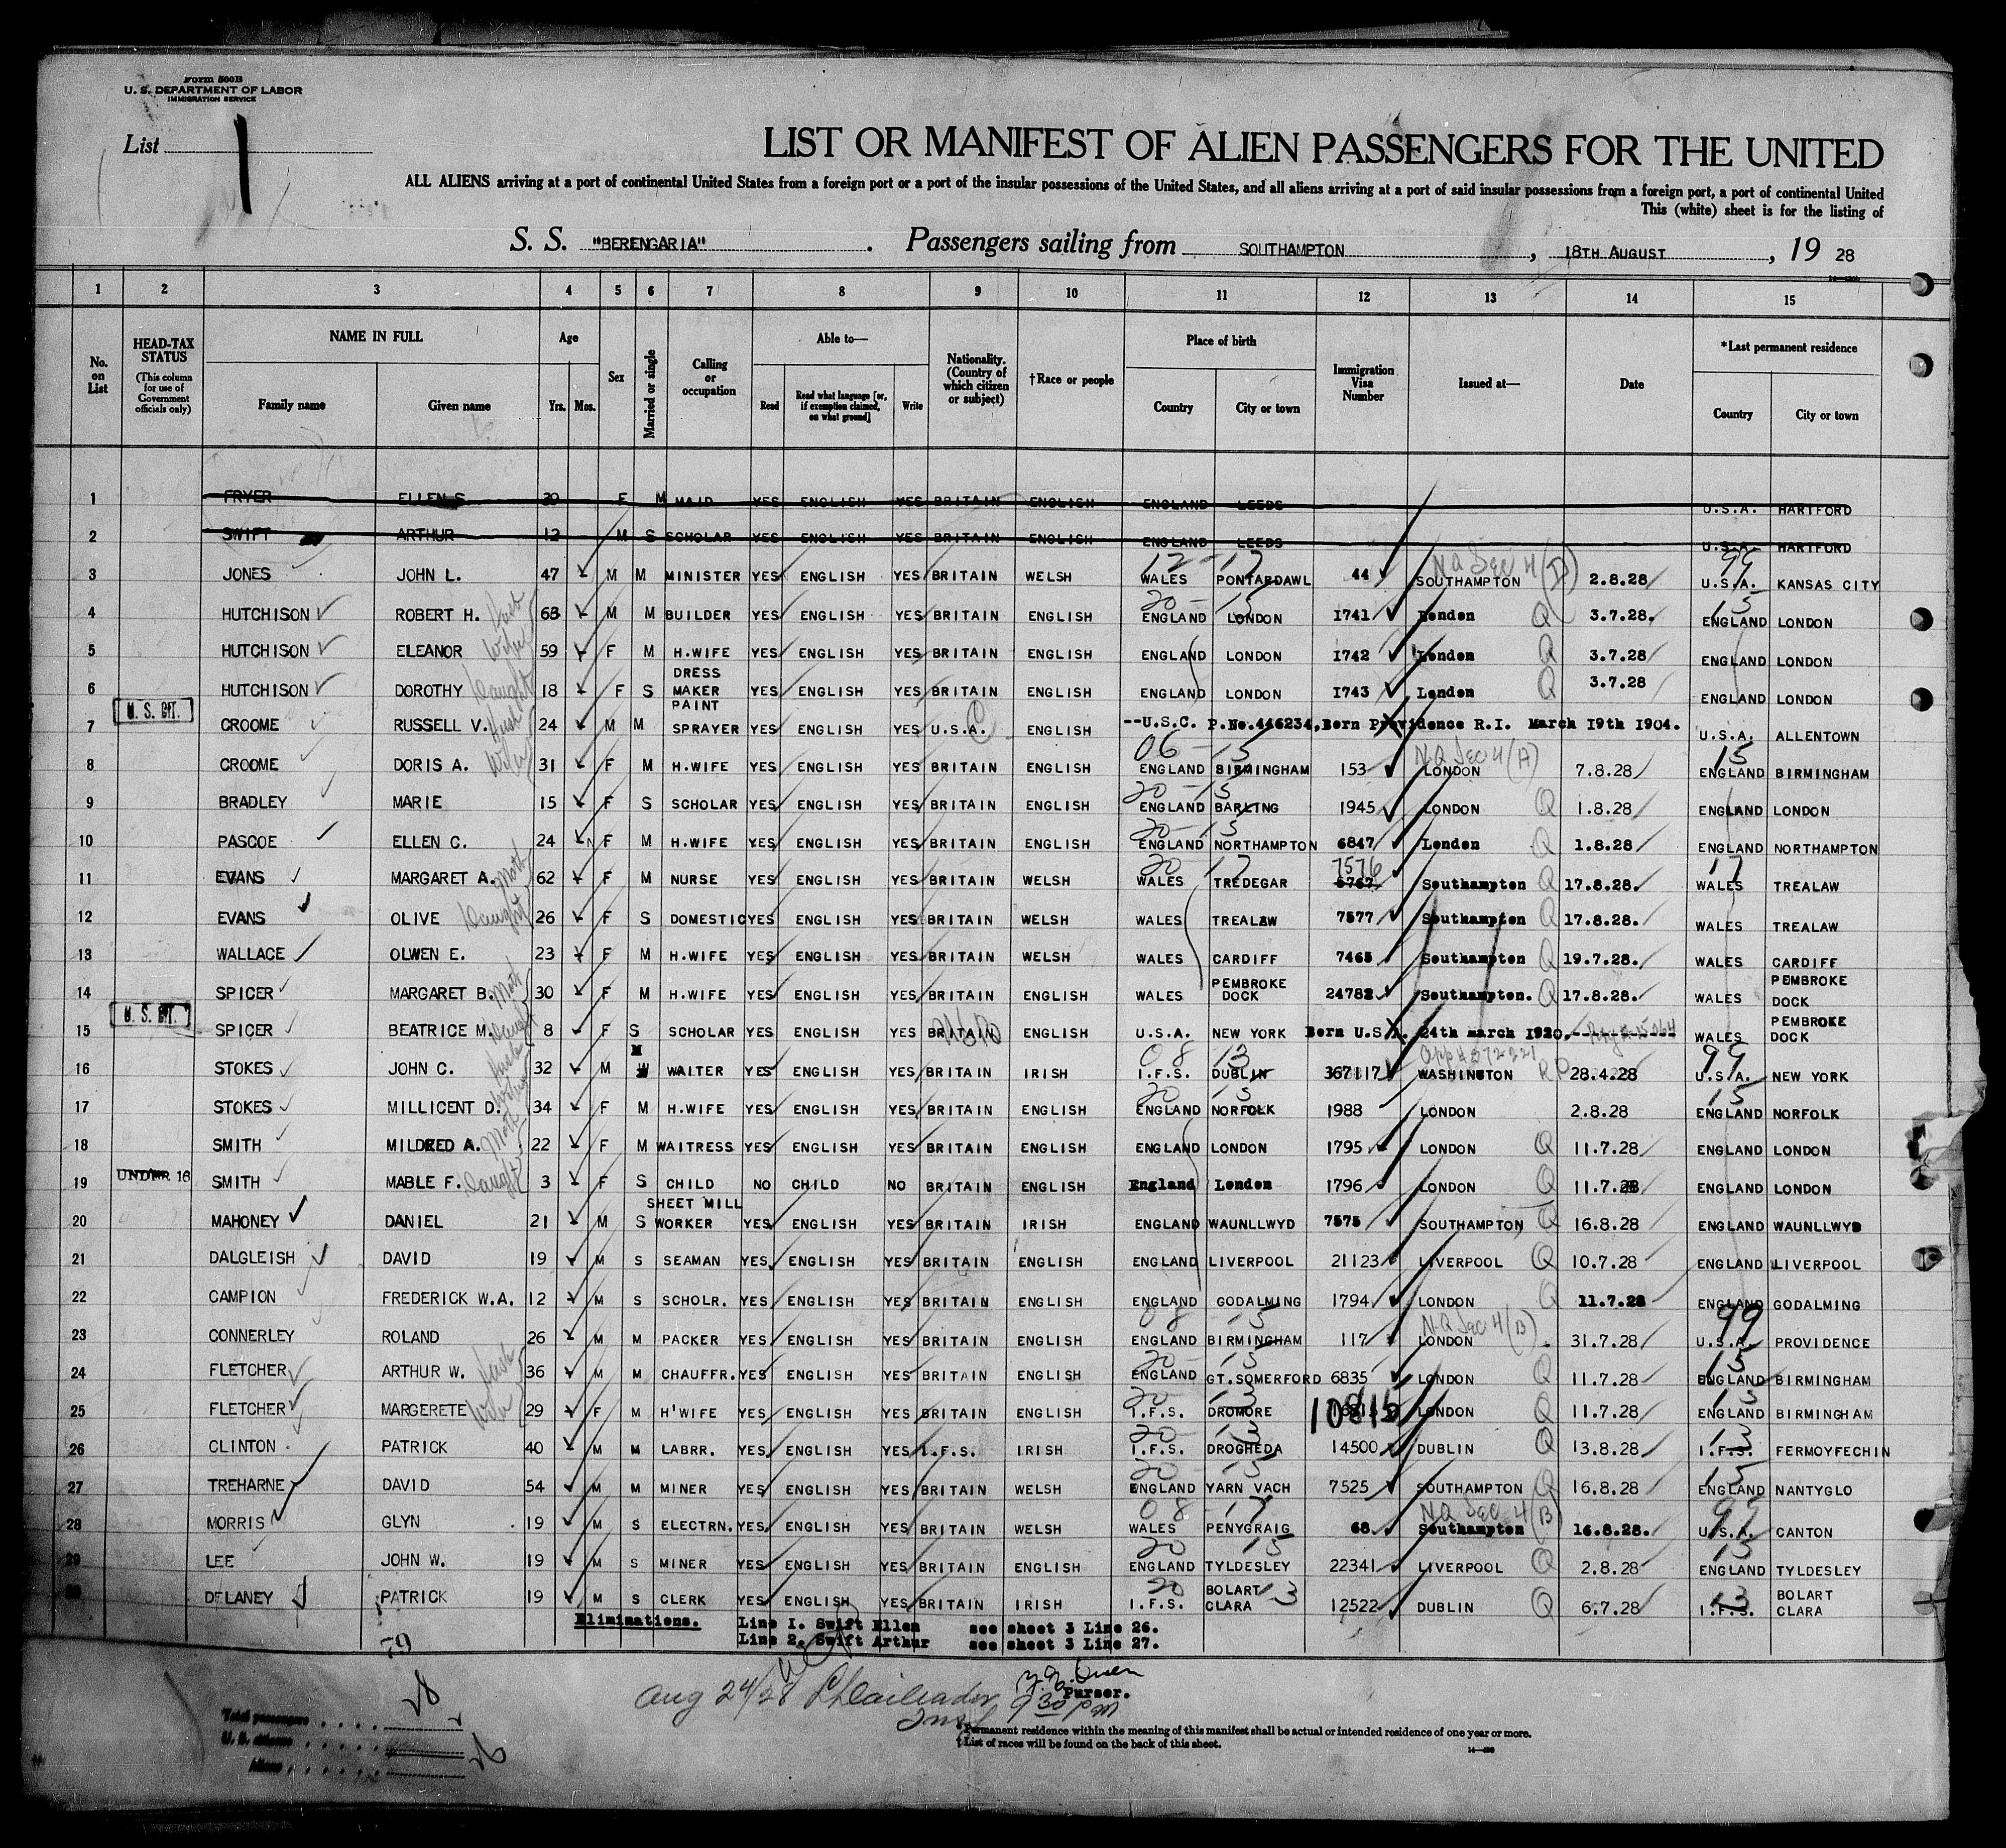 Form 500B
U. S. DEPARTMENT OF LABOR
IMMIGRATION SERVICE
List 1
LIST OR MANIFEST OF ALIEN PASSENGERS FOR THE UNITED
ALL ALIENS arriving at a port of continental United States from a foreign port or a port of the insular possessions of the United States, and all aliens arriving at a port of said insular possessions from a foreign port, a port of continental United
This (white) sheet is for the listing of
S. S. "BERENGARIA" . Passengers sailing from SOUTHAMPTON , 18TH AUGUST , 19 28
1 2 3 4 5 6 7 8 9 10 11 12 13 14 15
No. on List
HEAD-TAX STATUS (This column for use of Government officials only)
NAME IN FULL Family name Given name
Age Yrs. Mos.
Sex
Married or single
Calling or occupation
Able to— Read Read what language [or, if exemption claimed, on what ground] Write
Nationality. (Country of which citizen or subject)
†Race or people
Place of birth Country City or town
Immigration Visa Number
Issued at—
Date
*Last permanent residence Country City or town
1 FRYER ELLEN S. 39 F M MAID YES ENGLISH YES BRITAIN ENGLISH ENGLAND LEEDS U.S.A. HARTFORD
2 SWIFT ARTHUR 12 M S SCHOLAR YES ENGLISH YES BRITAIN ENGLISH ENGLAND LEEDS U.S.A. HARTFORD
12 - 17 NQ Sec 4 (D) 99
3 JONES JOHN L. 47 M M MINISTER YES ENGLISH YES BRITAIN WELSH WALES PONTARDAWL 44 SOUTHAMPTON 2.8.28 U.S.A. KANSAS CITY
20 - 15 15
4 HUTCHISON ROBERT H. 63 M M BUILDER YES ENGLISH YES BRITAIN ENGLISH ENGLAND LONDON 1741 London Q 3.7.28. ENGLAND LONDON
5 HUTCHISON ELEANOR Wife 59 F M H.WIFE YES ENGLISH YES BRITAIN ENGLISH ENGLAND LONDON 1742 London Q 3.7.28 ENGLAND LONDON
6 HUTCHISON DOROTHY Daught 18 F S DRESS MAKER YES ENGLISH YES BRITAIN ENGLISH ENGLAND LONDON 1743 London Q 3.7.28 ENGLAND LONDON
7 U. S. CIT. CROOME RUSSELL V. Hush 24 M M PAINT SPRAYER YES ENGLISH YES U.S.A. ENGLISH --U.S.C. P.No.446234,Born Providence R.I. March 19th 1904. U.S.A. ALLENTOWN
06 - 15 NQ Sec 4 (A) 15
8 CROOME DORIS A. Wife 31 F M H.WIFE YES ENGLISH YES BRITAIN ENGLISH ENGLAND BIRMINGHAM 153 LONDON 7.8.28 ENGLAND BIRMINGHAM
20 - 15
9 BRADLEY MARIE 15 F S SCHOLAR YES ENGLISH YES BRITAIN ENGLISH ENGLAND BARLING 1945 LONDON Q 1.8.28 ENGLAND LONDON
20 - 15
10 PASCOE ELLEN C. 24 F M H.WIFE YES ENGLISH YES BRITAIN ENGLISH ENGLAND NORTHAMPTON 6847 London Q 1.8.28 ENGLAND NORTHAMPTON
20 17 7576 17
11 EVANS MARGARET A. Moth 62 F M NURSE YES ENGLISH YES BRITAIN WELSH WALES TREDEGAR 6767 Southampton Q 17.8.28. WALES TREALAW
12 EVANS OLIVE Daught 26 F S DOMESTIC YES ENGLISH YES BRITAIN WELSH WALES TREALAW 7577 Southampton Q 17.8.28. WALES TREALAW
13 WALLACE OLWEN E. 23 F M H.WIFE YES ENGLISH YES BRITAIN WELSH WALES CARDIFF 7465 Southampton Q 19.7.28. WALES CARDIFF
14 SPICER MARGARET B. Moth 30 F M H.WIFE YES ENGLISH YES BRITAIN ENGLISH WALES PEMBROKE DOCK 24782 Southampton. Q 17.8.28. WALES PEMBROKE DOCK
15 U. S. CIT. SPICER BEATRICE M. Daught 8 F S SCHOLAR YES ENGLISH YES BRITAIN ENGLISH U.S.A. NEW YORK Born U.S.A. 24th march 1920.------- WALES PEMBROKE DOCK
08 13 99
16 STOKES JOHN C. 32 M M W WAITER YES ENGLISH YES BRITAIN IRISH I.F.S. DUBLIN 367117 WASHINGTON RP 28.4.28 U.S.A. NEW YORK
20 15 15
17 STOKES MILLICENT D. 34 F M H.WIFE YES ENGLISH YES BRITAIN ENGLISH ENGLAND NORFOLK 1988 LONDON 2.8.28 ENGLAND NORFOLK
18 SMITH MILDRED A. Moth 22 F M WAITRESS YES ENGLISH YES BRITAIN ENGLISH ENGLAND LONDON 1795 LONDON Q 11.7.28 ENGLAND LONDON
19 UNDER 16 SMITH MABLE F. Daught 3 F S CHILD NO CHILD NO BRITAIN ENGLISH England London 1796 LONDON Q 11.7.28 ENGLAND LONDON
20 MAHONEY DANIEL 21 M S SHEET MILL WORKER YES ENGLISH YES BRITAIN IRISH ENGLAND WAUNLLWYD 7575 SOUTHAMPTON Q 16.8.28 ENGLAND WAUNLLWYD
21 DALGLEISH DAVID 19 M S SEAMAN YES ENGLISH YES BRITAIN ENGLISH ENGLAND LIVERPOOL 21123 LIVERPOOL Q 10.7.28 ENGLAND LIVERPOOL
22 CAMPION FREDERICK W.A. 12 M S SCHOLR. YES ENGLISH YES BRITAIN ENGLISH ENGLAND GODALMING 1794 LONDON Q 11.7.28 ENGLAND GODALMING
08 15 NQ Sec 4 (B) 99
23 CONNERLEY ROLAND 26 M M PACKER YES ENGLISH YES BRITAIN ENGLISH ENGLAND BIRMINGHAM 117 LONDON 31.7.28 U.S.A. PROVIDENCE
20 - 15 15
24 FLETCHER ARTHUR W. Hush 36 M M CHAUFFR. YES ENGLISH YES BRITAIN ENGLISH ENGLAND GT.SOMERFORD 6835 LONDON Q 11.7.28 ENGLAND BIRMINGHAM
20 - 13 15
25 FLETCHER MARGERETE Wife 29 F M H'WIFE YES ENGLISH YES BRITAIN ENGLISH I.F.S. DROMORE 10815 LONDON Q 11.7.28 ENGLAND BIRMINGHAM
20 - 13 13
26 CLINTON PATRICK 40 M M LABRR. YES ENGLISH YES I.F.S. IRISH I.F.S. DROGHEDA 14500 DUBLIN Q 13.8.28 I.F.S. FERMOYFECHIN
20 - 15 15
27 TREHARNE DAVID 54 M M MINER YES ENGLISH YES BRITAIN WELSH ENGLAND YARN VACH 7525 SOUTHAMPTON Q 16.8.28 ENGLAND NANTYGLO
08 - 17 NQ Sec 4 (B) 99
28 MORRIS GLYN 19 M S ELECTRN. YES ENGLISH YES BRITAIN WELSH WALES PENYGRAIG 68 Southampton 16.8.28. U.S.A. CANTON
20 15 15
29 LEE JOHN W. 19 M S MINER YES ENGLISH YES BRITAIN ENGLISH ENGLAND TYLDESLEY 22341 LIVERPOOL Q 2.8.28 ENGLAND TYLDESLEY
20 13 13
30 DELANEY PATRICK 19 M S CLERK YES ENGLISH YES BRITAIN IRISH I.F.S. BOLART CLARA 12522 DUBLIN Q 6.7.28 I.F.S. BOLART CLARA
Eliminations. Line 1. Swift Ellen see sheet 3 Line 26.
Line 2. Swift Arthur see sheet 3 Line 27.
Aug 24/28
Purser.
9 30 PM
Total passengers 28
U. S. citizens
Aliens 26
*Permanent residence within the meaning of this manifest shall be actual or intended residence of one year or more.
†List of races will be found on the back of this sheet.